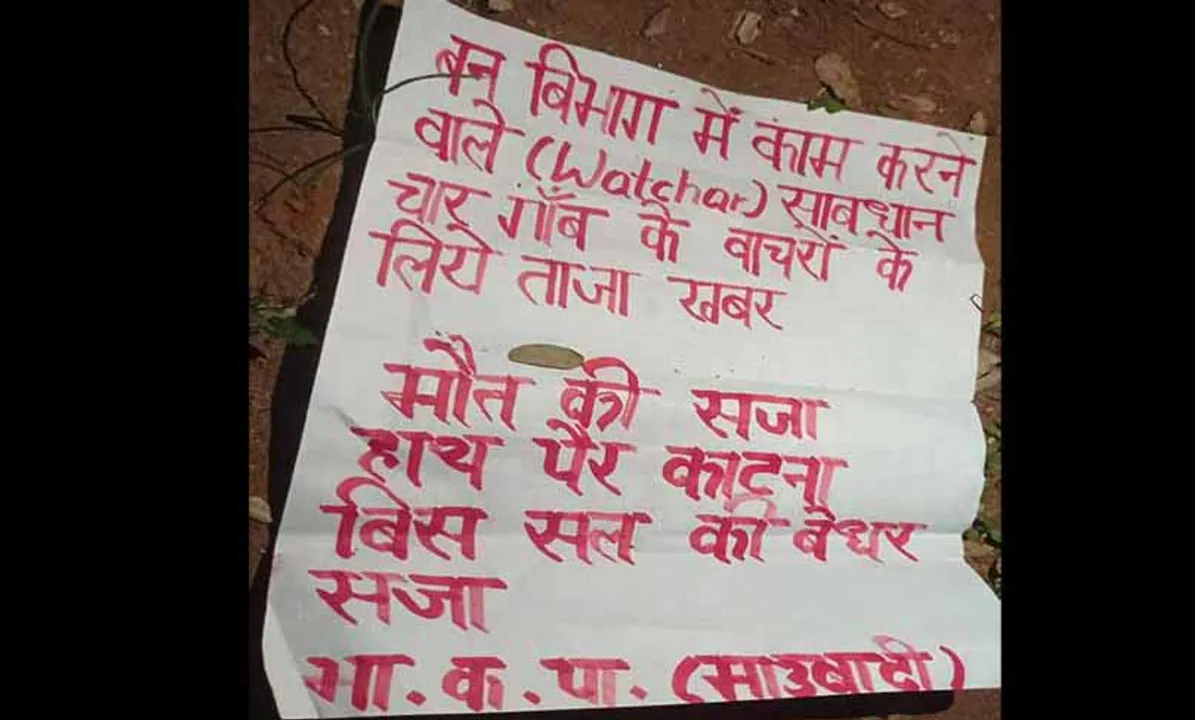 बन बिभाग में काम करने
वाले (Watchar) साबधान
चार गाँब के वाचरों के
लिये ताजा खबर
मौत की सजा
हाथ पैर काटना
बिस सल की बेघर
सजा
भा. क. पा. (माउबादी)